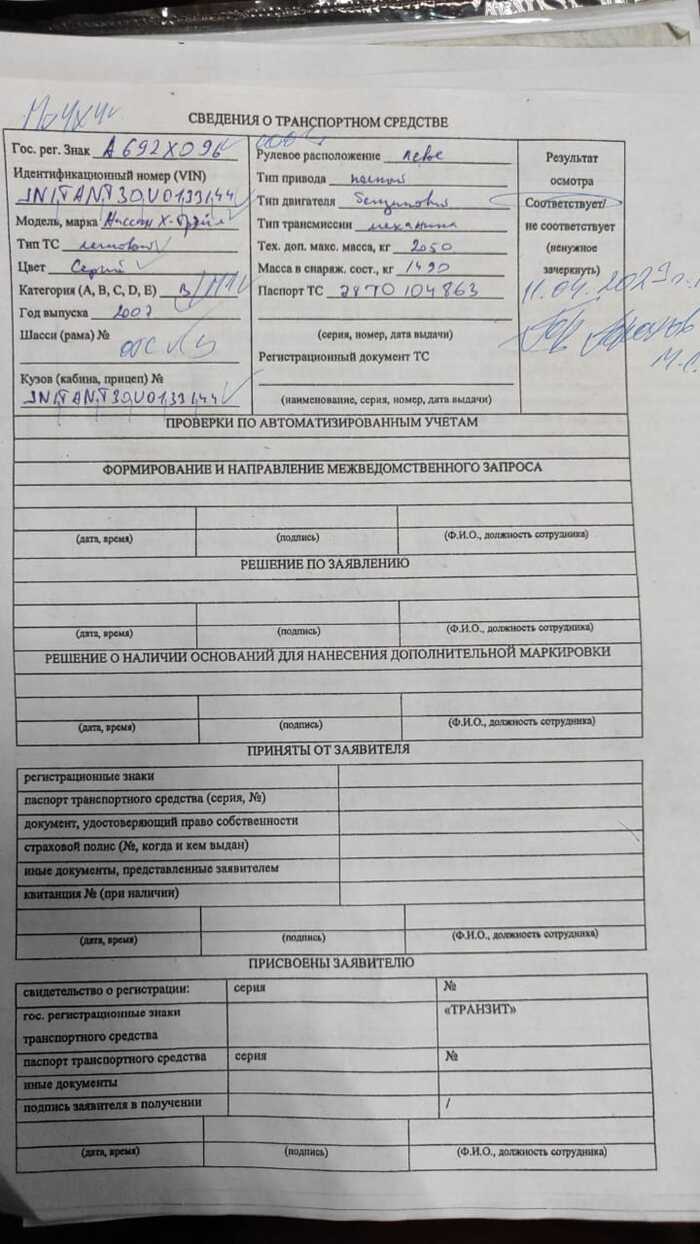 СВЕДЕНИЯ О ТРАНСПОРТНОМ СРЕДСТВЕ
Гос. рег. Знак А 692 ХО 96
Идентификационный номер (VIN)
JN1TANT30U0133144
Модель, марка Ниссан Х-Трейл
Тип ТС легковой
Цвет Серый
Категория (A, B, C, D, E) B / M1
Год выпуска 2007
Шасси (рама) №
Кузов (кабина, прицеп) №
JN1TANT30U0133144
Рулевое расположение левое
Тип привода полный
Тип двигателя бензиновый
Тип трансмиссии механика
Тех. доп. макс. масса, кг 2050
Масса в снаряж. сост., кг 1490
Паспорт ТС 7870 104863
(серия, номер, дата выдачи)
Регистрационный документ ТС
(наименование, серия, номер, дата выдачи)
Результат
осмотра
Соответствует/
не соответствует
(ненужное
зачеркнуть)
11.04.2023 г.
ПРОВЕРКИ ПО АВТОМАТИЗИРОВАННЫМ УЧЕТАМ
ФОРМИРОВАНИЕ И НАПРАВЛЕНИЕ МЕЖВЕДОМСТВЕННОГО ЗАПРОСА
(дата, время) (подпись) (Ф.И.О., должность сотрудника)
РЕШЕНИЕ ПО ЗАЯВЛЕНИЮ
(дата, время) (подпись) (Ф.И.О., должность сотрудника)
РЕШЕНИЕ О НАЛИЧИИ ОСНОВАНИЙ ДЛЯ НАНЕСЕНИЯ ДОПОЛНИТЕЛЬНОЙ МАРКИРОВКИ
(дата, время) (подпись) (Ф.И.О., должность сотрудника)
ПРИНЯТЫ ОТ ЗАЯВИТЕЛЯ
регистрационные знаки
паспорт транспортного средства (серия, №)
документ, удостоверяющий право собственности
страховой полис (№, когда и кем выдан)
иные документы, представленные заявителем
квитанция № (при наличии)
(дата, время) (подпись) (Ф.И.О., должность сотрудника)
ПРИСВОЕНЫ ЗАЯВИТЕЛЮ
свидетельство о регистрации: серия №
гос. регистрационные знаки «ТРАНЗИТ»
транспортного средства
паспорт транспортного средства серия №
иные документы
подпись заявителя в получении /
(дата, время) (подпись) (Ф.И.О., должность сотрудника)